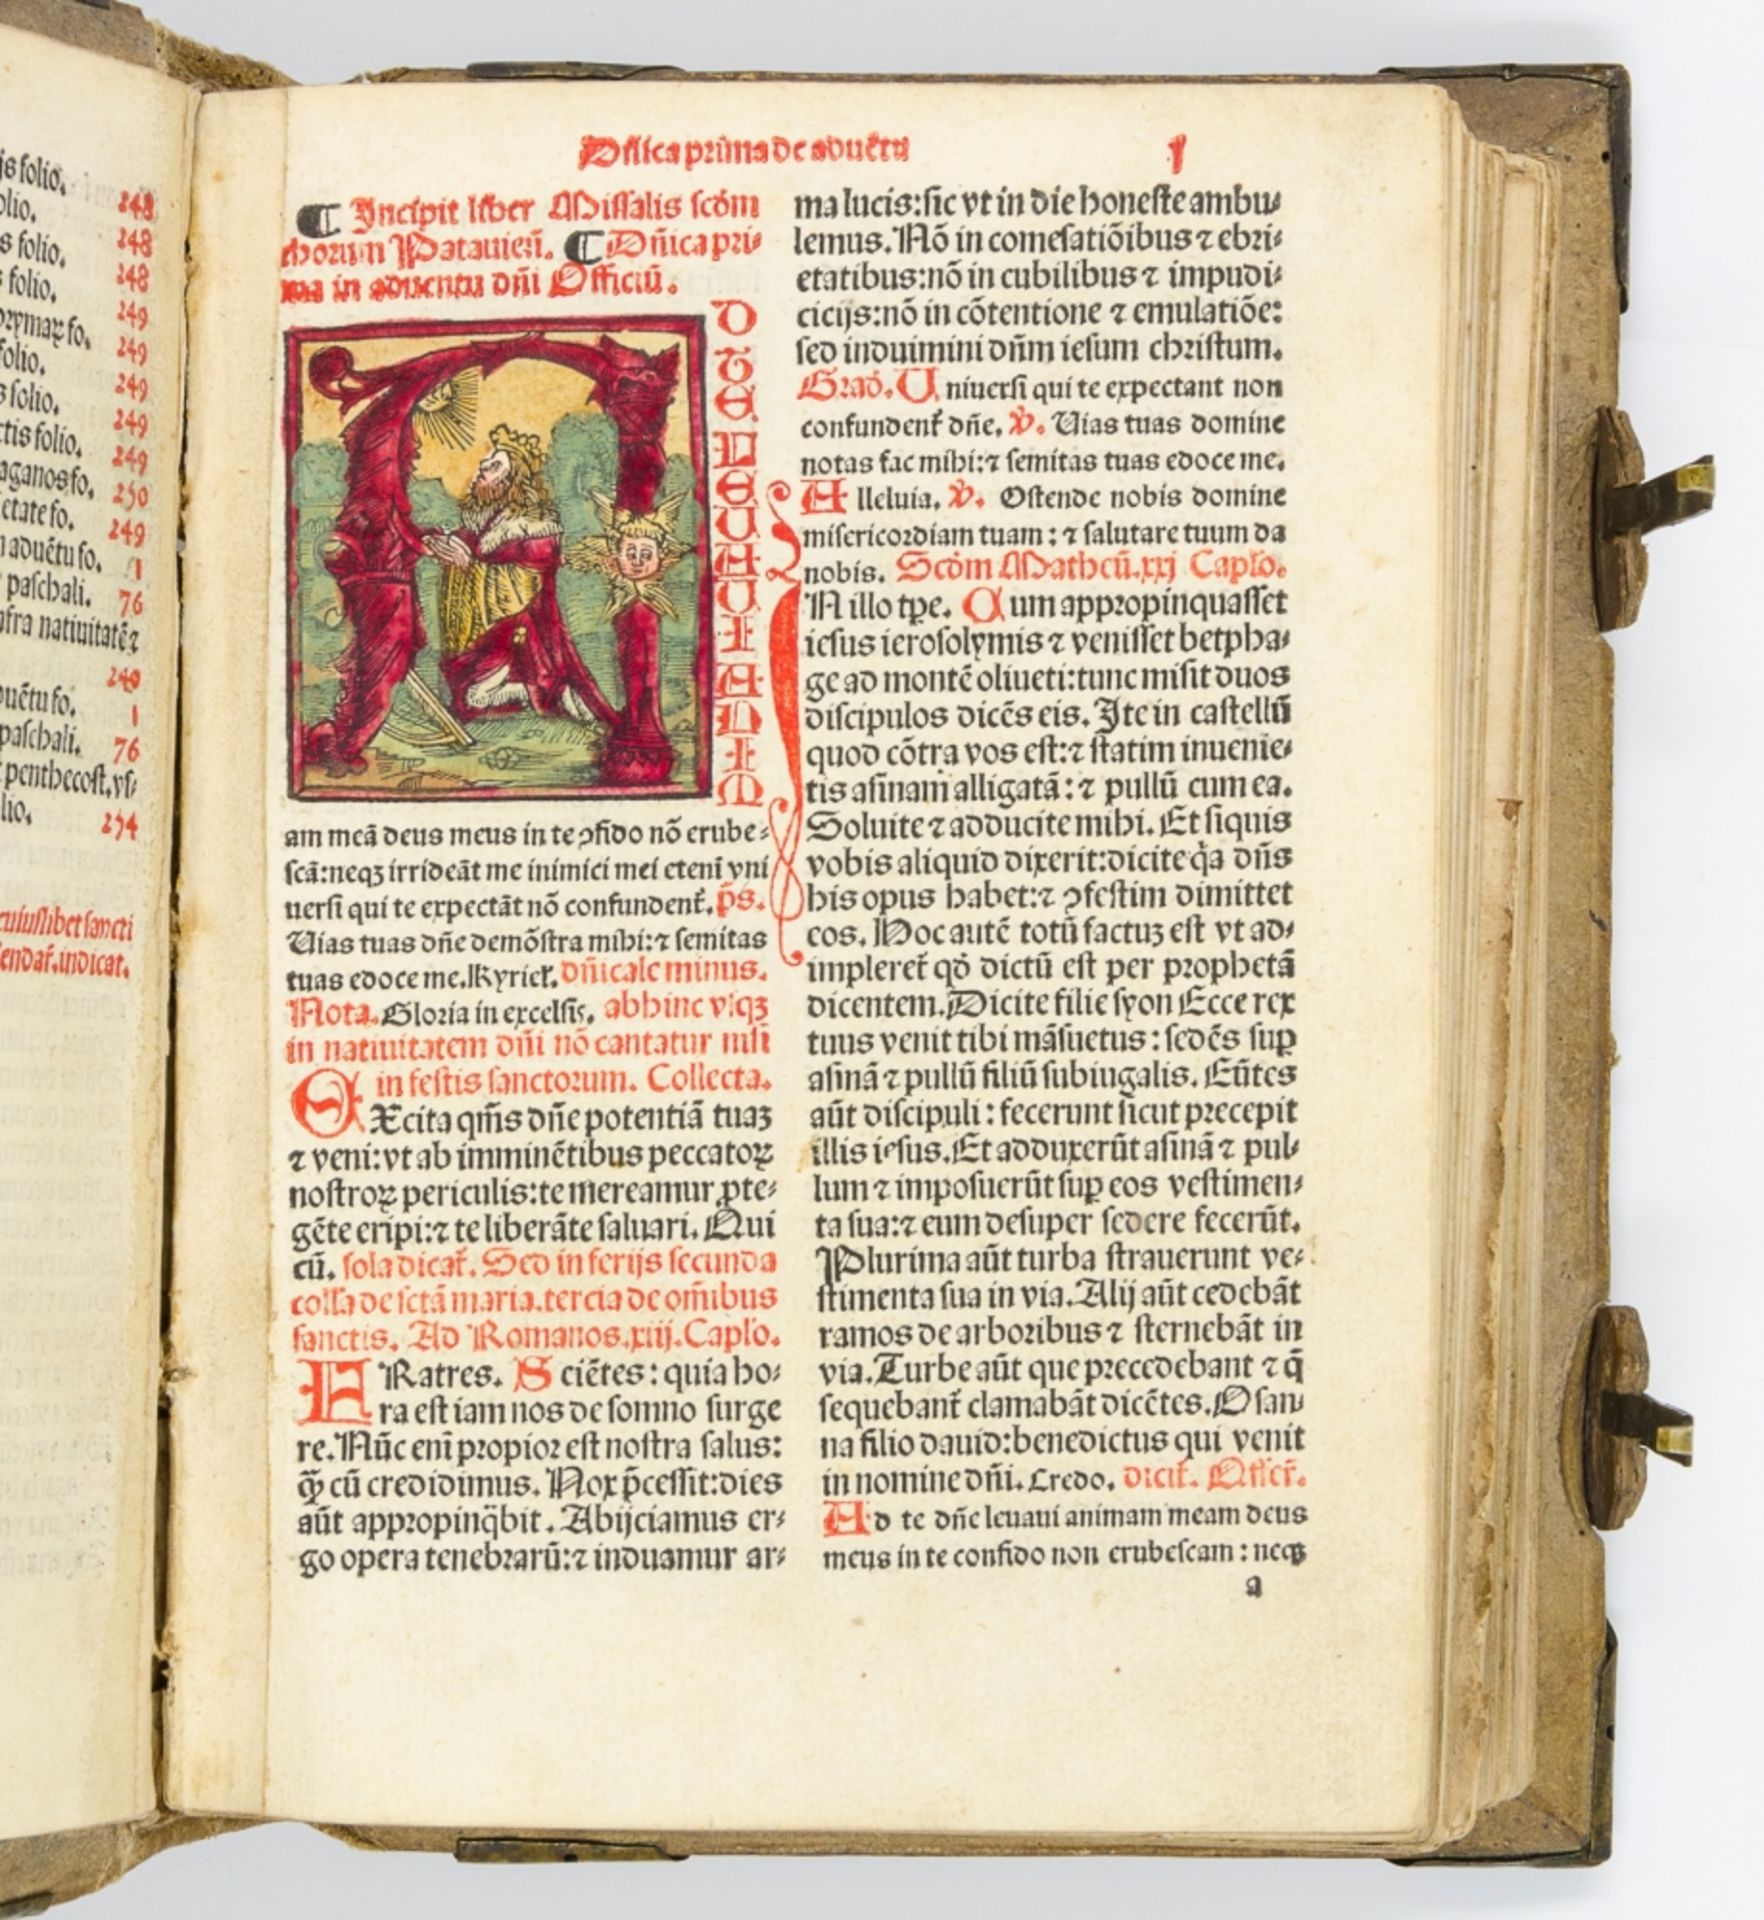 js folio. 248
olio. 248
s folio. 248
s folio. 249
fo. 249
folio. 249
s folio. 249
ctis folio. 249
aganos fo. 250
etate fo. 249
n aduētu fo. 1
paschali. 76
nfra natiuitatē ⁊
240
duētu fo. 1
paschali. 76
penthecost. vs⸗
lio. 254
cuiuslibet sancti
endat̄. indicat.
Dn̄ica prima de aduētu
1
¶ Incipit liber Missalis scd̄m
chorum Patauieñ. ¶ Dn̄ica pri⸗
ma in aduentu dn̄i Officiū.
A
D
T
E
L
E
U
A
U
I
A
N
I
M
am meā deus meus in te ꝯfido nō erube⸗
scā: neqꝫ irrideāt me inimici mei etenī vni
uersi qui te expectāt nō confundent̄. p̄s.
Uias tuas dn̄e demōstra mihi: ⁊ semitas
tuas edoce me. Kyriel̄. dn̄icale minus.
Nota. Gloria in excelsis. abhinc vsqꝫ
in natiuitatem dn̄i nō cantatur nisi
in festis sanctorum. Collecta.
EXcita qm̄s dn̄e potentiā tuaꝫ
⁊ veni: vt ab imminētibus peccatoꝝ
nostroꝝ periculis: te mereamur ꝓte⸗
gēte eripi: ⁊ te liberāte saluari. Qui
cū. sola dicat̄. Sed in ferijs secunda
coll̄a de sctā maria. tercia de om̄ibus
sanctis. Ad Romanos. xiij. Caplo.
FRatres. Sciētes: quia ho⸗
ra est iam nos de somno surge
re. Nūc enī propior est nostra salus:
ꝙ̄ cū credidimus. Nox p̄cessit: dies
aūt appropinq̄bit. Abijciamus er⸗
go opera tenebrarū: ⁊ induamur ar⸗
ma lucis: sic vt in die honeste ambu⸗
lemus. Nō in comesatiōibus ⁊ ebri⸗
etatibus: nō in cubilibus ⁊ impudi⸗
cicijs: nō in cōtentione ⁊ emulatiōe:
sed induimini dn̄m iesum christum.
Grad̄. Uniuersi qui te expectant non
confundent̄ dn̄e. ℣. Uias tuas domine
notas fac mihi: ⁊ semitas tuas edoce me.
Alleluia. ℣. Ostende nobis domine
misericordiam tuam: ⁊ salutare tuum da
nobis. Scd̄m Matheū. xxj Caplo.
IN illo tp̄e. Cum appropinquasset
iesus ierosolymis ⁊ venisset betpha⸗
ge ad montē oliueti: tunc misit duos
discipulos dicēs eis. Ite in castellū
quod cōtra vos est: ⁊ statim inuenie⸗
tis asinam alligatā: ⁊ pullū cum ea.
Soluite ⁊ adducite mihi. Et siquis
vobis aliquid dixerit: dicite qꝛa dn̄s
his opus habet: ⁊ ꝯfestim dimittet
eos. Hoc autē totū factuꝫ est vt ad⸗
impleret̄ qd̄ dictū est per prophetā
dicentem. Dicite filie syon Ecce rex
tuus venit tibi māsuetus: sedēs suꝑ
asinā ⁊ pullū filiū subiugalis. Eūtes
aūt discipuli: fecerunt sicut precepit
illis iesus. Et adduxerūt asinā ⁊ pul⸗
lum ⁊ imposuerūt suꝑ eos vestimen⸗
ta sua: ⁊ eum desuper sedere fecerūt.
Plurima aūt turba strauerunt ve⸗
stimenta sua in via. Alij aūt cedebāt
ramos de arboribus ⁊ sternebāt in
via. Turbe aūt que precedebant ⁊ q̄
sequebant̄ clamabāt dicētes. Osan⸗
na filio dauid: benedictus qui venit
in nomine dn̄i. Credo. dicit̄. Offer̄.
Ad te dn̄e leuaui animam meam deus
meus in te confido non erubescam: neqꝫ
a